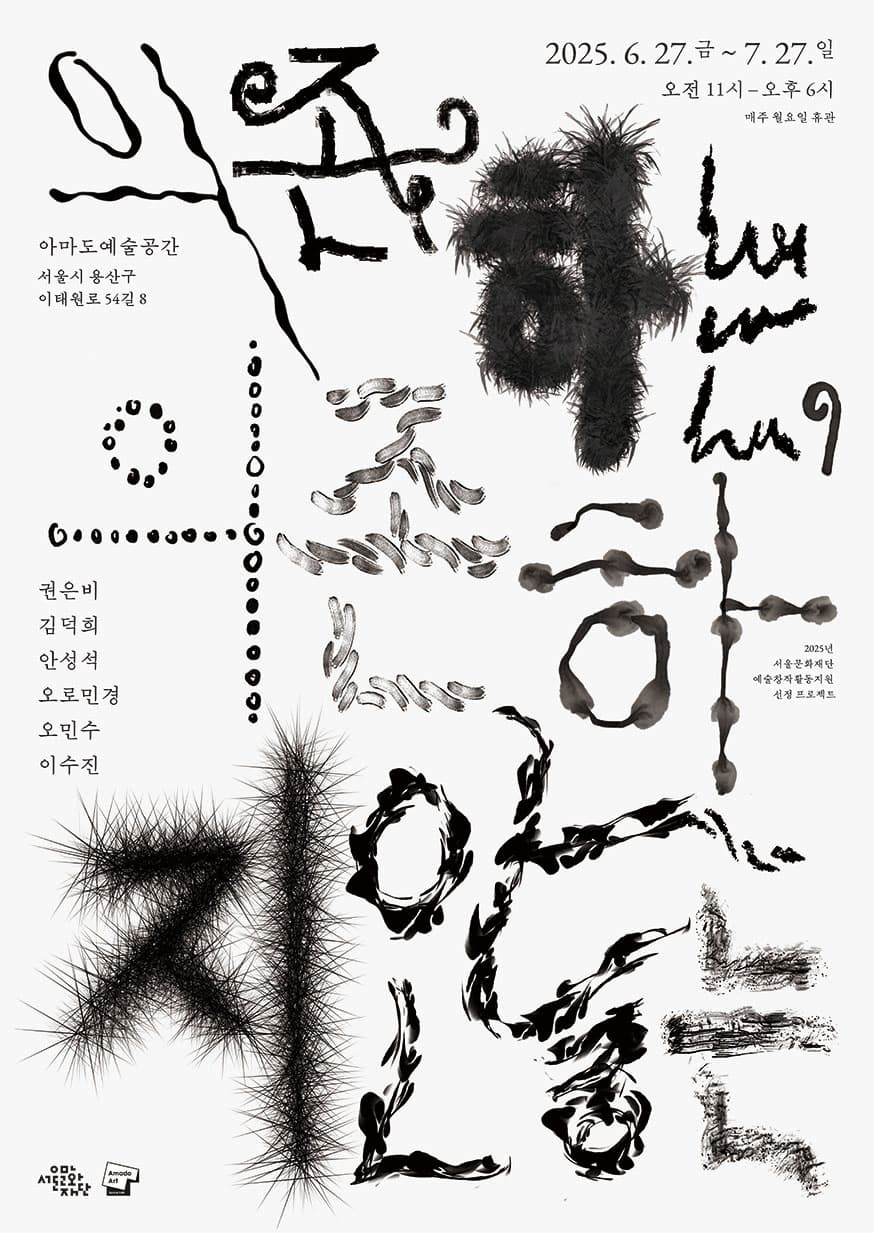 2025. 6. 27.금 ~ 7. 27.일
오전 11시 – 오후 6시
매주 월요일 휴관
의존하는,
아마도예술공간
서울시 용산구
이태원로 54길 8
의존하
권은비
김덕희
안성석
오로민경
오민수
이수진
2025년
서울문화재단
예술창작활동지원
선정 프로젝트
지 않는
서울문화재단
Amado
Art